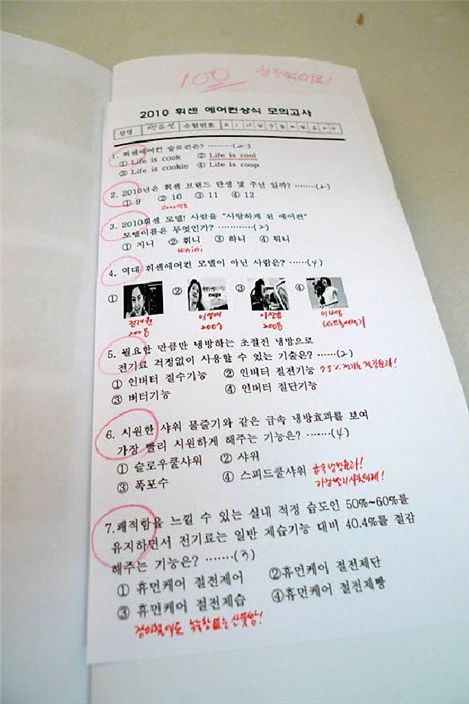 100
2010 휘센 에어컨상식 모의고사
성명 수험번호
1. 휘센에어컨 슬로건은? ········(2)
① Life is cook ② Life is cool
③ Life is cookie ④ Life is coop
2. 2010년은 휘센 브랜드 탄생 몇 주년 일까? ········(2)
① 9 ② 10 ③ 11 ④ 12
3. 2010휘센 모델! 사람을 "사랑하게 된 에어컨"
모델이름은 무엇인가? ·············(2)
① 지니 ② 휘니 ③ 하니 ④ 튀니
whini
4. 역대 휘센에어컨 모델이 아닌 사람은? ······(4)
① ② ③ ④
2008 2009 2008
5. 필요한 만큼만 냉방하는 초절진 냉방으로
전기료 걱정없이 사용할 수 있는 기술은? ······(2)
① 인버터 절수기능 ② 인버터 절전기능
③ 버터기능 ④ 인버터 절단기능
6. 시원한 샤워 물줄기와 같은 급속 냉방효과를 보여
가장 빨리 시원하게 해주는 기능은? ·······(4)
① 슬로우쿨샤워 ② 샤워
③ 폭포수 ④ 스피드쿨샤워 급속냉방효과!
7. 쾌적함을 느낄 수 있는 실내 적정 습도인 50%~60%를
유지하면서 전기료는 일반 제습기능 대비 40.4%를 절감
해주는 기능은? ·······(3)
① 휴먼케어 절전제어 ②휴먼케어 절전제단
③ 휴먼케어 절전제습 ④휴먼케어 절전제빵